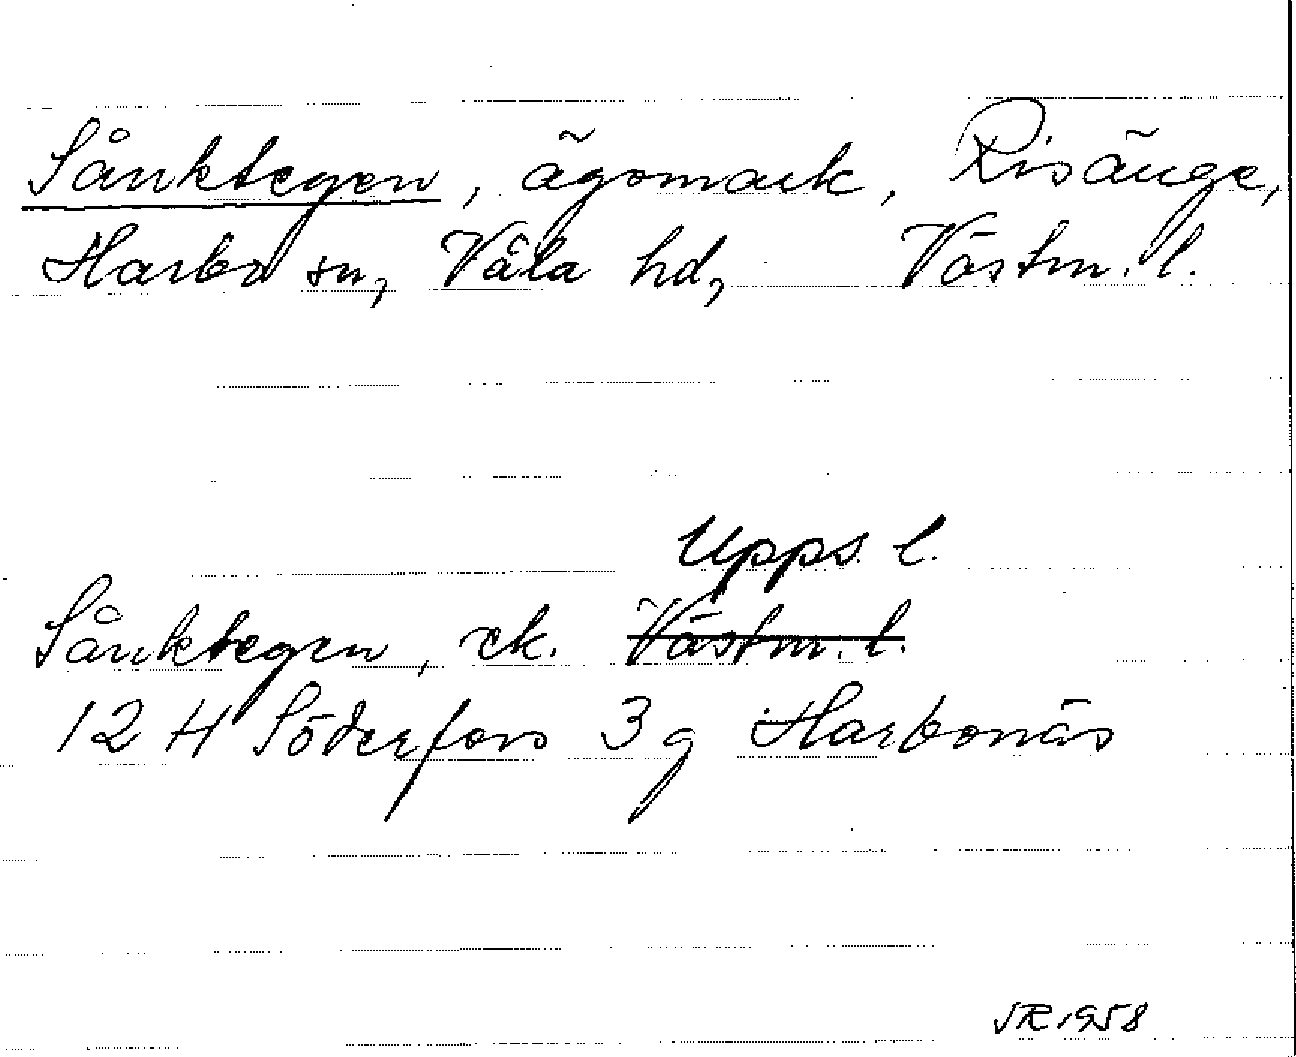 Sånktegen, ägomark, Risänge,
Harbo sn, Våla hd, Västm. l.
Upps. l.
Sånktegen, ek. Västm. l.
12 H Söderfors 3g Harbonäs
VR 1958